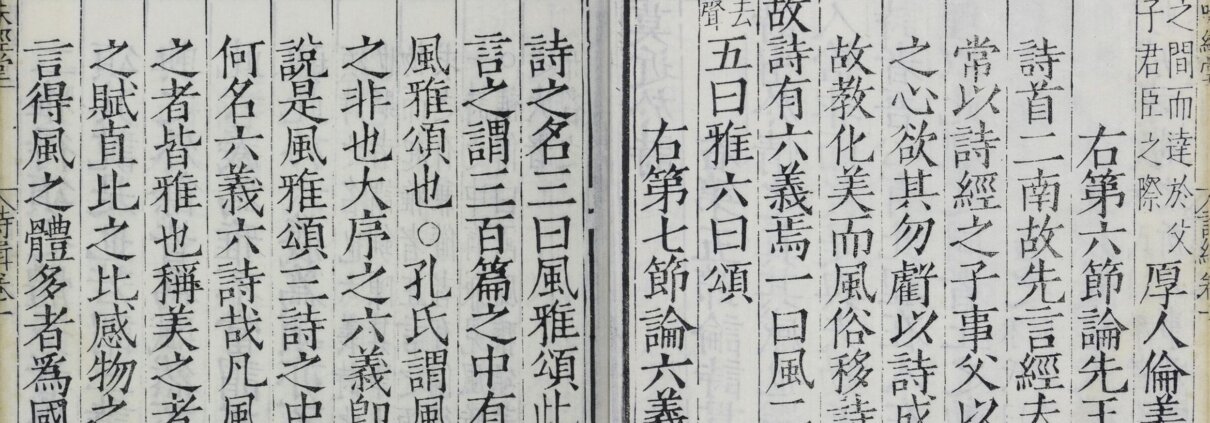 之間而達於父
子君臣之際
厚人倫美
右第六節論先王
詩首二南故先言經夫
常以詩經之子事父以
之心欲其勿虧以詩成
故教化美而風俗移詩
故詩有六義焉一曰風二
去
聲
五曰雅六曰頌
右第七節論六義
詩之名三曰風雅頌此
言之謂三百篇之中有
風雅頌也○孔氏謂風
之非也大序之六義卽
說是風雅頌三詩之中
何名六義六詩哉凡風
之者皆雅也稱美之者
之賦直比之比感物之
言得風之體多者爲國
詩緝卷一